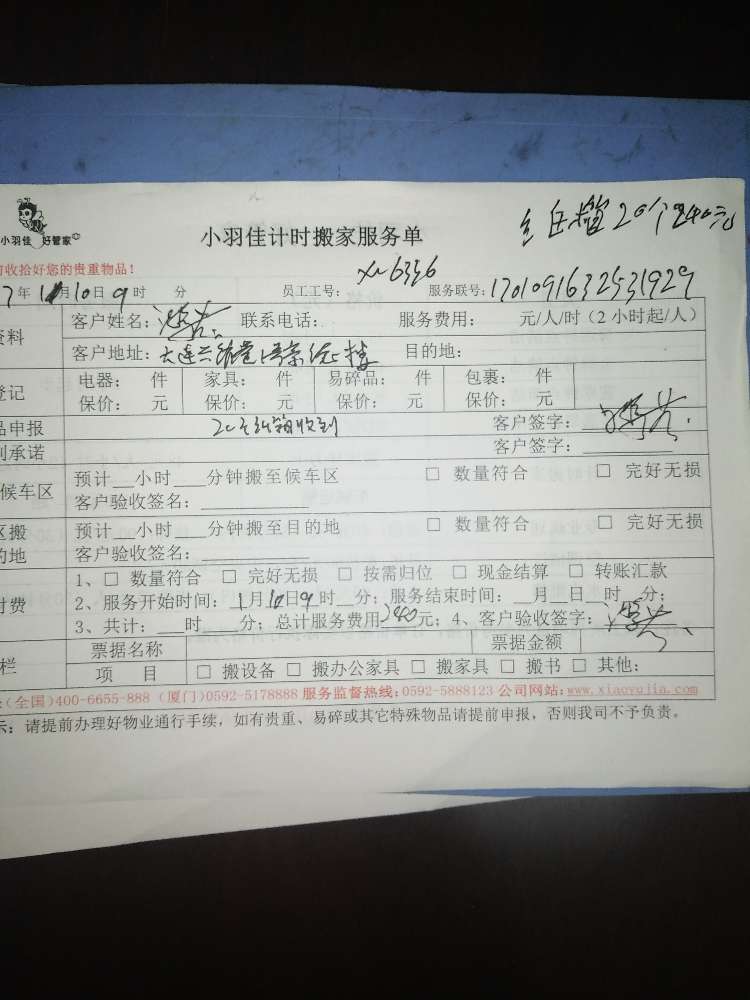 20个240元
小羽佳 好管家
小羽佳计时搬家服务单
前收拾好您的贵重物品！
7年1月10日9时 分 员工工号：xm6336 服务联号：1701091632531929
资料 客户姓名： 联系电话： 服务费用： 元/人/时（2小时起/人）
客户地址： 目的地：
登记 电器： 件 家具： 件 易碎品： 件 包裹： 件
保价： 元 保价： 元 保价： 元 保价： 元
品申报 20个纸箱收到 客户签字：
则承诺 客户签字：
候车区 预计__小时___分钟搬至候车区 □ 数量符合 □ 完好无损
客户验收签名：
区搬 预计__小时___分钟搬至目的地 □ 数量符合 □ 完好无损
的地 客户验收签名：
1、□ 数量符合 □ 完好无损 □ 按需归位 □ 现金结算 □ 转账汇款
付费 2、服务开始时间：1月10日9时__分；服务结束时间：__月__日__时__分；
3、共计：___时___分；总计服务费用240元；4、客户验收签字：
栏 票据名称 票据金额
项 目 □ 搬设备 □ 搬办公家具 □ 搬家具 □ 搬书 □ 其他：
：（全国）400-6655-888（厦门）0592-5178888 服务监督热线：0592-5888123 公司网站：www.xiaoyujia.com
示：请提前办理好物业通行手续，如有贵重、易碎或其它特殊物品请提前申报，否则我司不予负责。